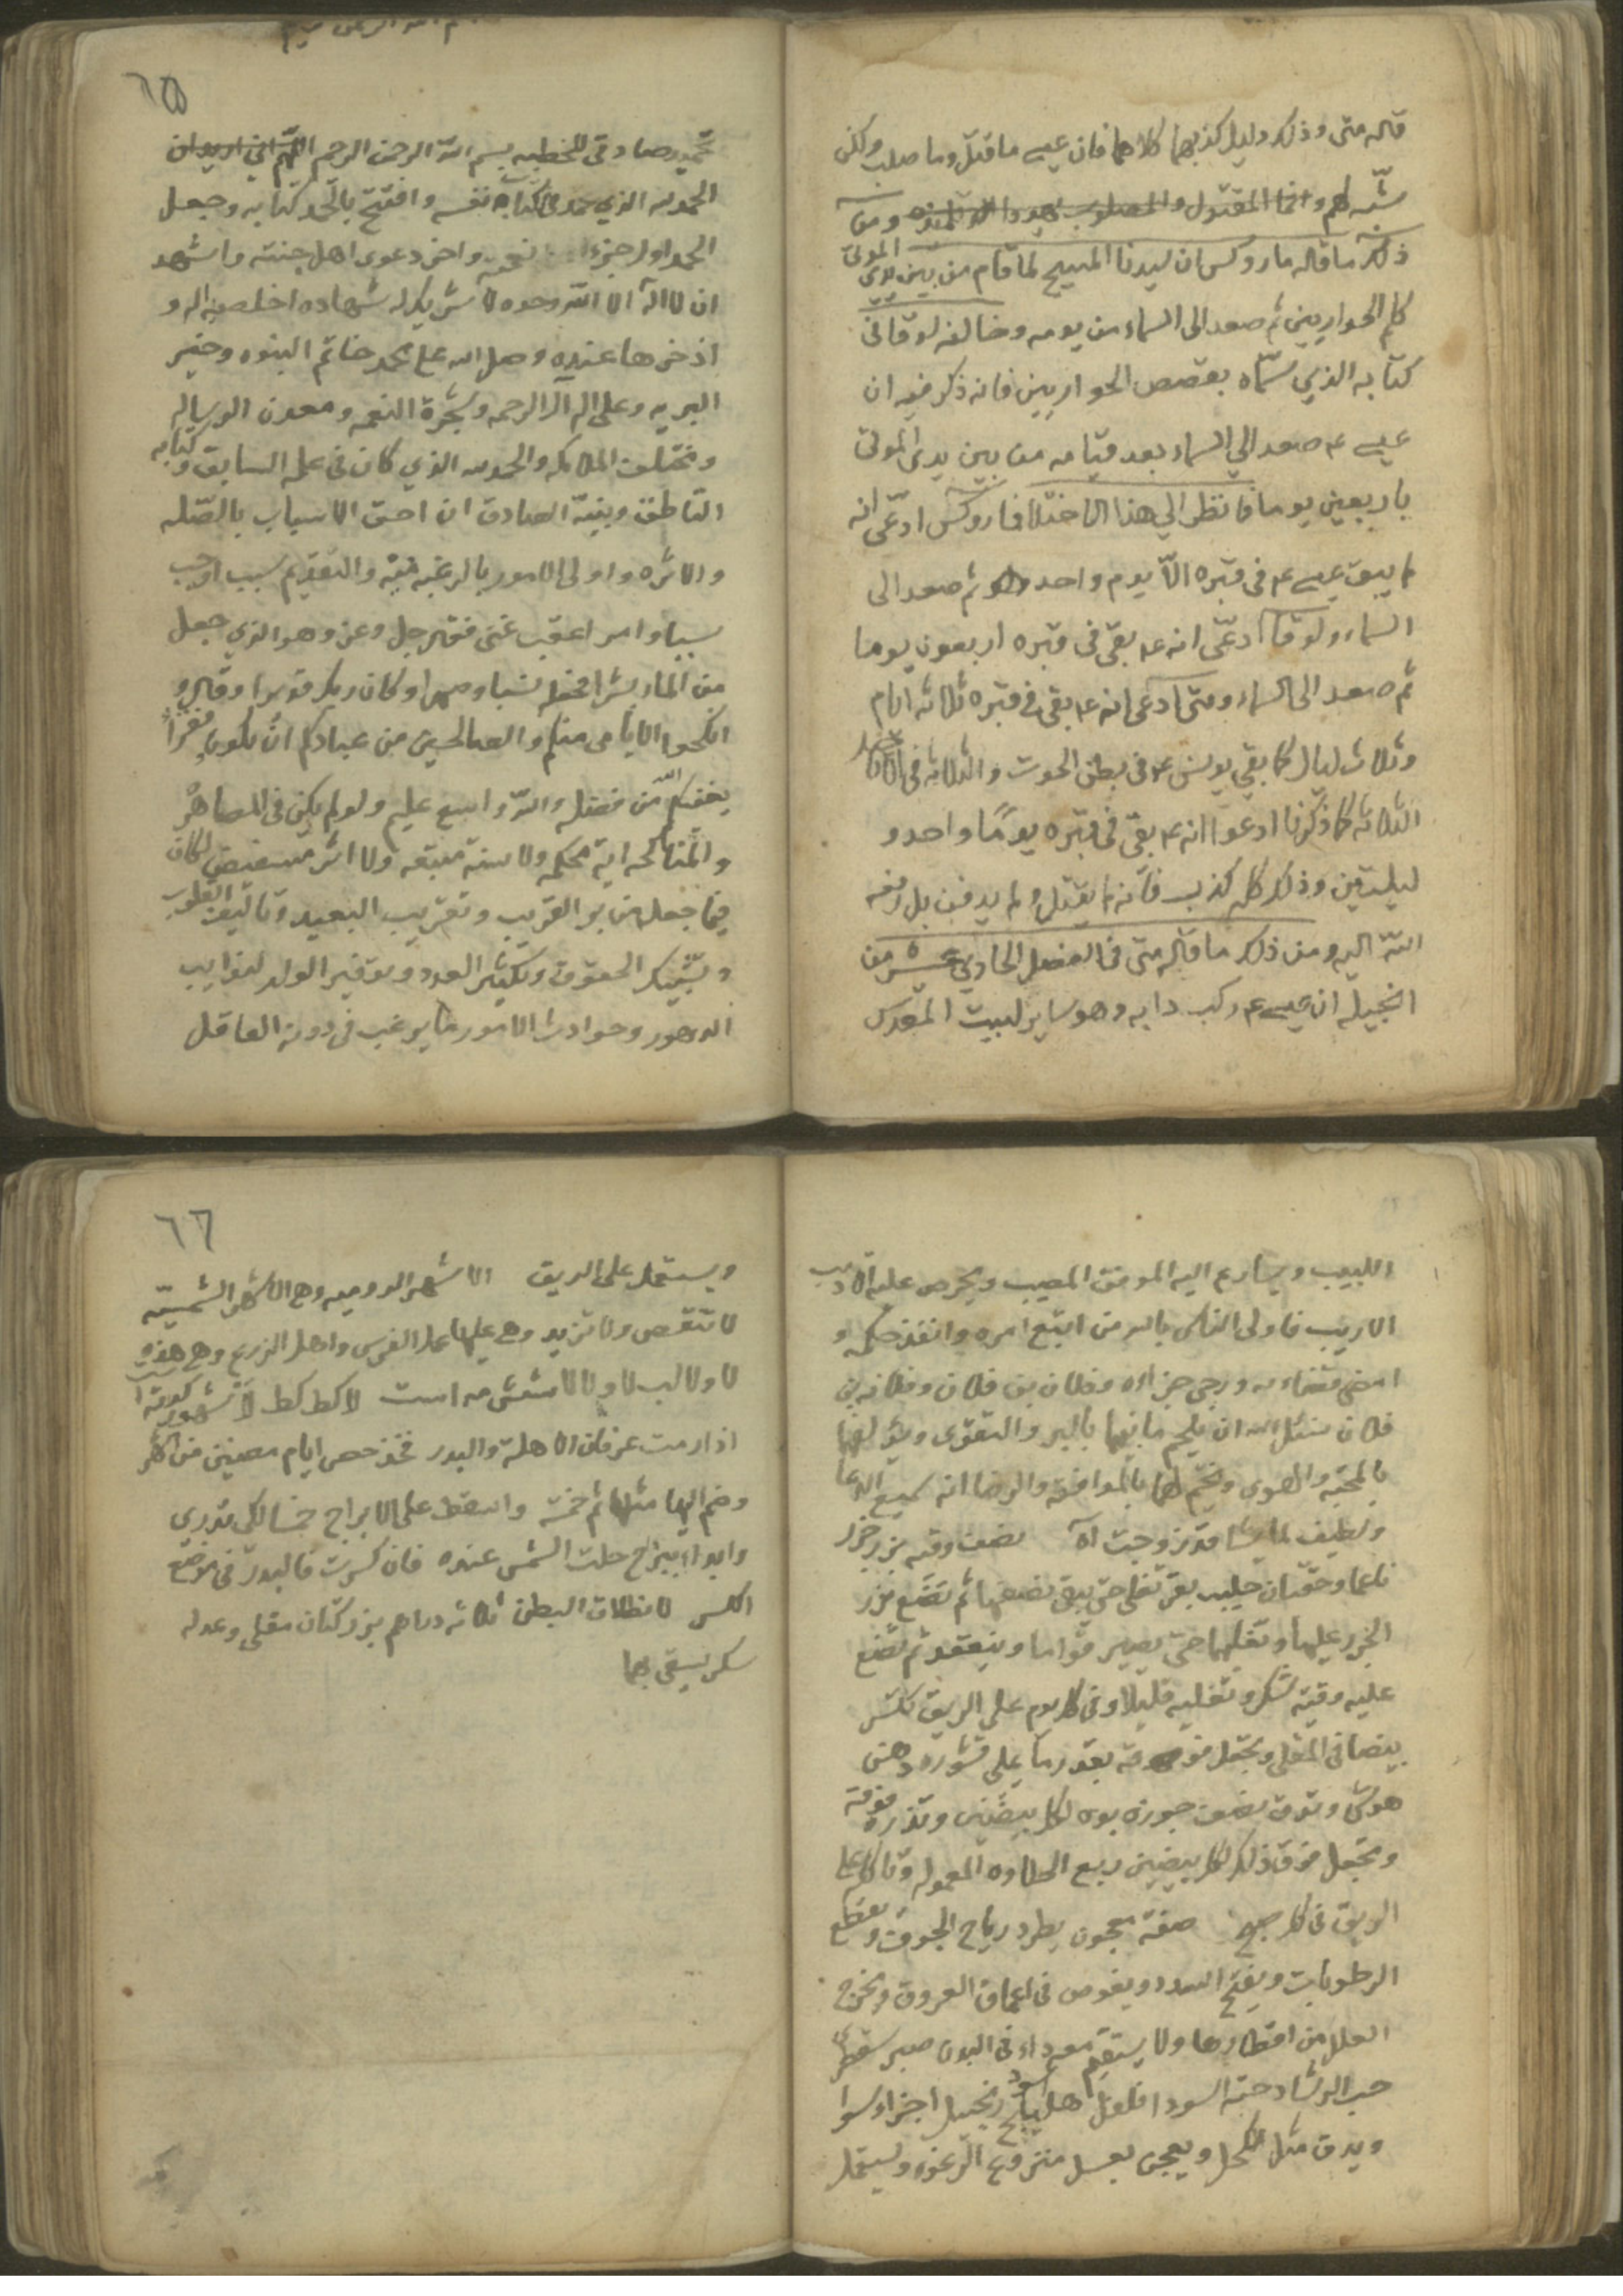 قاله متى وذلك دليل كذبهما كلاهما فان عيسى ما قتل وما صلب ولكن
شبّه لهم وانما المقتول والمصلوب يهودا ومن
ذلك ما قاله ماروكس ان سيدنا المسيح لما قام من بين يدي الموتى
كلم الحواريين ثم صعد الى السماء من يومه وخالفه لوقا في
كتابه الذي سمّاه بقصص الحواريين فانه ذكر فيه ان
عيسى ع صعد الي السماء بعد قيامه من بين يدي الموتى
باربعين يوما فانظر الي هذا الاختلاف ماروكس ادعّى انه
لم يبق عيسى ع في قبره الّا يوم واحد ثم صعد الى
السماء ولوقا ادعّى انه ع بقى في قبره اربعون يوما
ثم صعد الى السماء ومتى ادعى انه ع بقى في قبره ثلاثه ايام
وثلاث ليال كما بقي يونس ع في بطن الحوت والثلاثه في
الثلاثه كما ذكرنا ادعوا انه ع بقى في قبره يومًا واحد و
ليلتين وذلك كله كذب فانّه لم يقتل ولم يدفن بل رفعه
اللّه اليه ومن ذلك ما قاله متى في الفصل الحادي عشر من
انجيله ان عيسى ع ركب دابه وهو ساير لبيت المقدس
٦٥
تحميد صادقى للخطبه بسم اللّه الرحمن الرحيم اللّهم اني اريد ان
الحمد لله الذي حمد في كتابه نفسه وافتتح بالحمد كتابه وجعل
الحمد اول جزء نعمته واخر دعوى اهل جنته واشهد
ان لا اله الا اللّه وحده لا شريك له شهاده اخلصها له و
اذخرها عنده وصلى الله على محمد خاتم النبوه وخير
البريه وعلى اله آل الرحمه وشجرة النعمه ومعدن الرساله
ومختلف الملائكه والحمد لله الذي كان في علمه السابق وكتابه
الناطق وبينّه الصادق ان احق الاسباب بالصّله
والاثره واولى الامور بالرغبه فيه والتقديم سبب اوجب
سببا وامر اعقب غنى فقال جل وعز وهو الذي جعل
من الماء بشرا فجعله نسبا وصهرا وكان ربك قديرا وقال و
انكحوا الايامى منكم والصالحين من عبادكم ان يكونوا فقراء
يغنهم اللّه من فضله واللّه واسع عليم ولو لم يكن في المصاهره
والمناكحه اية محكمه ولا سنة متبعه ولا اثر مستفيض لكان
فيما جعل من بر القريب وتقريب البعيد وتاليف القلوب
وتشبيك الحقوق وتكثير العدد وتوفير الولد لنوايب
الدهور وحوادث الامور ما يرغب في دونه العاقل
اللبيب ويسارع اليه الموفق المصيب ويحرص عليه الاديب
الاريب فاولى الناس بالله من اتبع امره وانفذ حكمه و
امضى قضاءه ورجى جزاءه وفلان بن فلان وفلانه بنت
فلان نسئل الله ان يلحم ما بينهما بالبر والتقوى ويؤلفهما
بالمحبه والهوى ويختم لهما بالموافقه والرضا انه سميع الدعا
ولطيف لما يشا قد تزوجت اه نصف وقيه بزر جزر
ناعما وحقتان حليب بقر تغلى حتى يبقى نصفها ثم تضع بزر
الجزر عليها وتغليهما حتى يصير قواما وينعقد ثم تضع
عليه وقيه سكر وتغليه قليلا وفي كل يوم على الريق تكسر
بيضا في المقلى وتجعل فوقه بقدر ما يملى قشوره دهن
وتدق نصف جوزه بوه لكل بيضتين وتذره فوقه
وتجعل فوق ذلك لكل بيضتين ربع الحلاوه المعموله وتاكل على
الريق في كل صبح صفة معجون يطرد رياح الجوف ويقطع
الرطوبات ويفتح السدد ويغوص في اعماق العروق ويخرج
العلل من اقطارها ولا يستقيم معه داء في البدن صبر سقطري
حب الرشاد حبة السودا فلفل هليلج اسود زنجبيل اجزاء سوا
ويدق مثل الكحل ويعجن بعسل منزوع الرغوه ويستعمل
٦٦
ويستعمل على الريق الاشهر الروميه وهي الاشهر الشمسيّه
لا تنقص ولا تزيد وهي عليها عمل الفرس واهل الزرع وهي هذه
لا ولا لب لا ولا لا شش مه است لا كط كط لا شهور كوته است
اذا رمت عرفان الاهلة والبدر فخذ خمس ايام مضين من الشهر
وضم اليها مثلها ثم خمسة واسقط على الابراج خمسا لكي تدري
وابداء ببرج حلت الشمس عنده فان كسرت فالبدر في موضع
الكسر لانطلاق البطن ثلاثه دراهم بزر كتان مقلي وعدله
سكر يسقى بهما